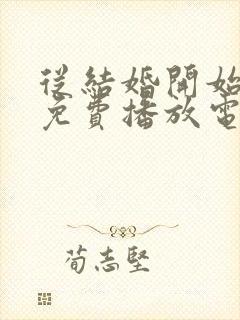 從結婚開始
免費播放電
荀志堅